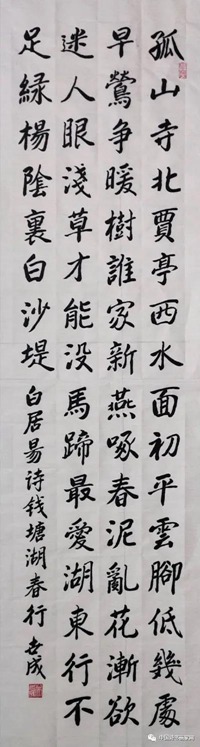 孤山寺北賈亭西水面初平雲腳低幾處
早鶯争暖樹誰家新燕啄春泥亂花漸欲
迷人眼淺草才能没馬蹄最愛湖東行不
足緑楊陰裏白沙堤
白居易诗钱塘湖春行 老成